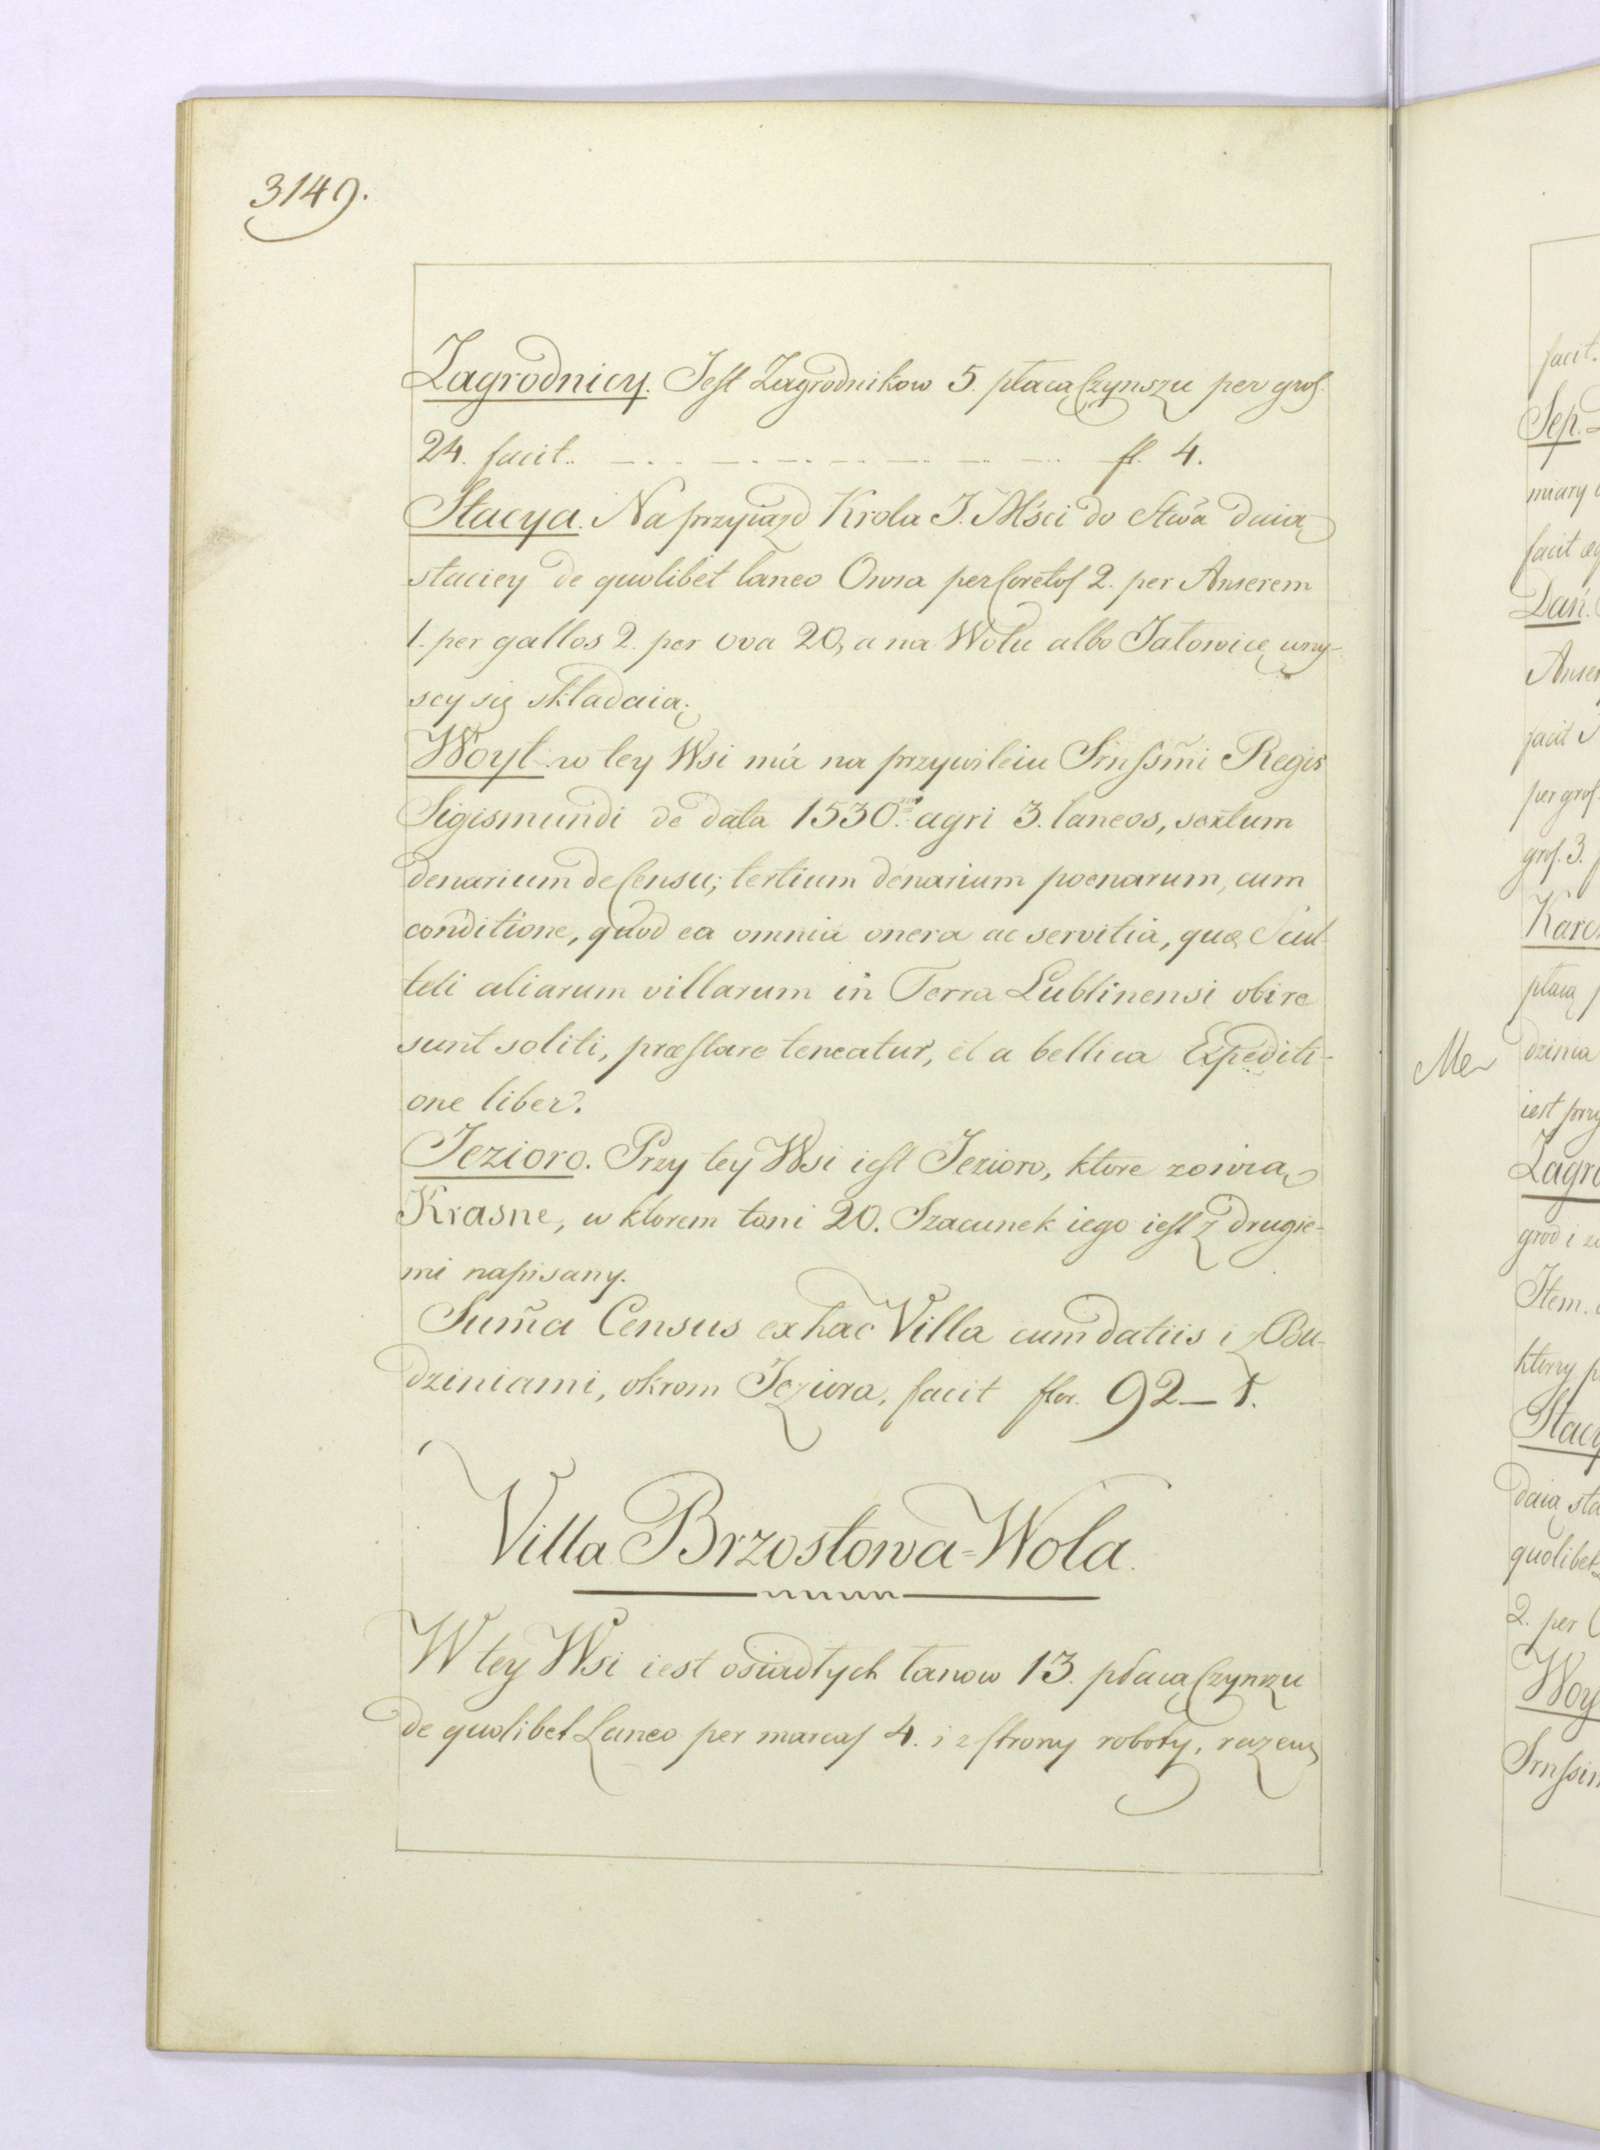 3149.
Zagrodnicy. Jest Zagrodnikow 5. płacą Czynszu per gros.
24. facit. fl. 4.
Stacya. Na przyiazd Krola J. Mści do Stwa daią
staciey de quolibet laneo Owsa per Coretos 2. per Anserem
1. per gallos 2. per ova 20, a na Wołu albo Jałowicę wszy-
scy się składaią.
Woyt w tey Wsi má na przywileiu Srnssmi Regis
Sigismundi de data 1530. agri 3. laneos, sextum
denarium de Censu; tertium denarium poenarum, cum
conditione, quod ea omnia onera ac servitia, quæ Scul-
teti aliarum villarum in Terra Lublinensi obire
sunt soliti, præstare teneatur, et a bellica Expediti-
one liber.
Jezioro. Przy tey Wsi iest Jezioro, ktore zowią
Krasne, w ktorem toni 20. Szacunek iego iest z drugie-
mi napisany.
Suma Census ex hac Villa cum datiis i z Bu-
dziniami, okrom Jeziora, facit flor. 92 — 1.
Villa Brzostowa=Wola.
W tey Wsi iest osiadłych łanow 13. płacą Czynszu
de quolibet Laneo per marcas 4. i z strony roboty, razem
facit.
Sep.
miary
facit
Dań.
facit
per gros.
gros. 3.
płacą
Me
dzinia
iest przy
Zagro
grod i
Item.
ktory
Stacy
daią sta
quolibet
2. per
Woy
Srnssim